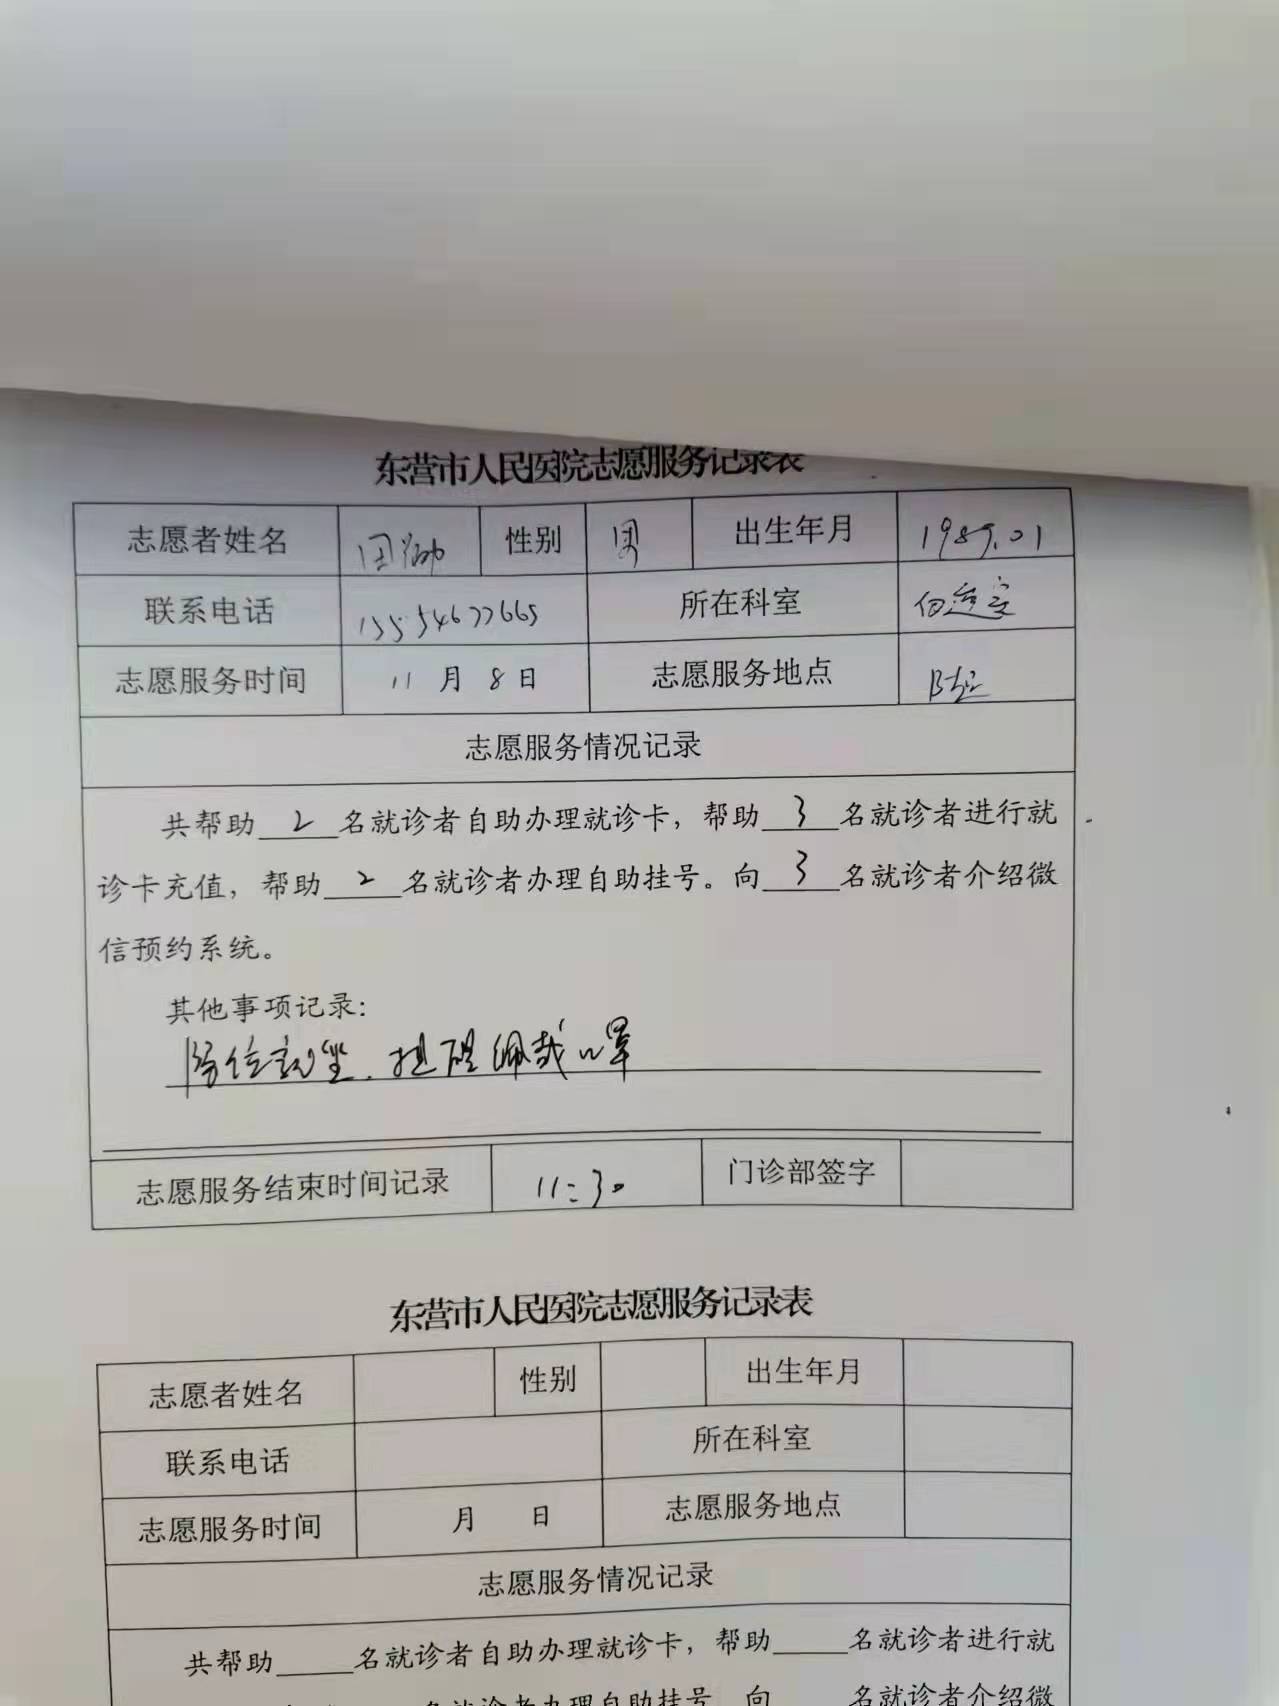 东营市人民医院志愿服务记录表
志愿者姓名 性别 男 出生年月 1989.01
联系电话 15554677665 所在科室
志愿服务时间 11月8日 志愿服务地点
志愿服务情况记录
共帮助2名就诊者自助办理就诊卡，帮助3名就诊者进行就
诊卡充值，帮助2名就诊者办理自助挂号。向3名就诊者介绍微
信预约系统。
其他事项记录：
提醒佩戴口罩
志愿服务结束时间记录 11:30 门诊部签字
东营市人民医院志愿服务记录表
志愿者姓名 性别 出生年月
联系电话 所在科室
志愿服务时间 月 日 志愿服务地点
志愿服务情况记录
共帮助_____名就诊者自助办理就诊卡，帮助_____名就诊者进行就
名就诊者办理自助挂号。向_____名就诊者介绍微